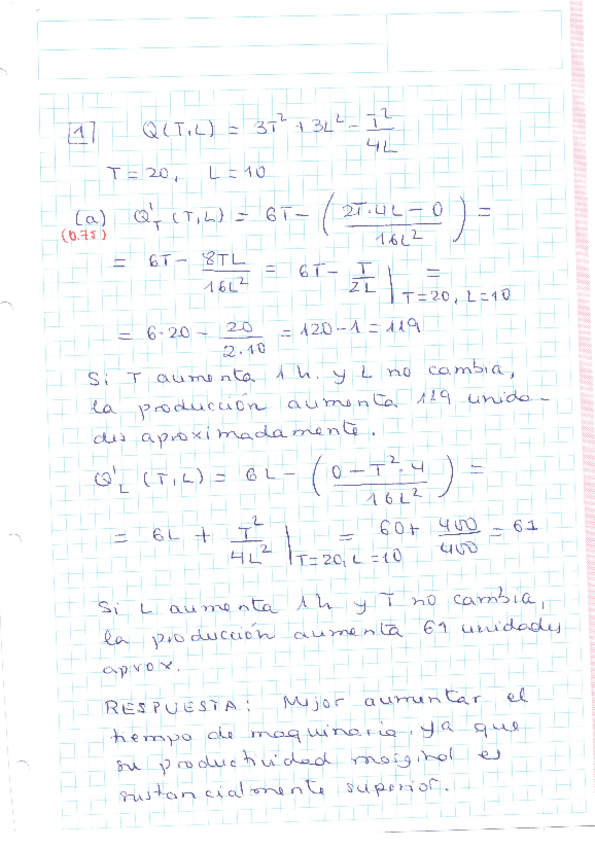 1 Q(T,L) = 3T² + 3L² - T²/4L
T = 20, L = 10
(a) Q'_T (T,L) = 6T - ( (2T·4L - 0)/16L² ) =
(0.75)
= 6T - 8TL/16L² = 6T - T/2L | T=20, L=10 =
= 6·20 - 20/2·10 = 120 - 1 = 119
Si T aumenta 1 h. y L no cambia,
la producción aumenta 119 unida-
des aproximadamente.
Q'_L (T,L) = 6L - ( (0 - T²·4)/16L² ) =
= 6L + T²/4L² | T=20, L=10 = 60 + 400/400 = 61
Si L aumenta 1h y T no cambia,
la producción aumenta 61 unidades
aprox.
RESPUESTA: Mejor aumentar el
tiempo de maquinaria, ya que
su productividad marginal es
sustancialmente superior.